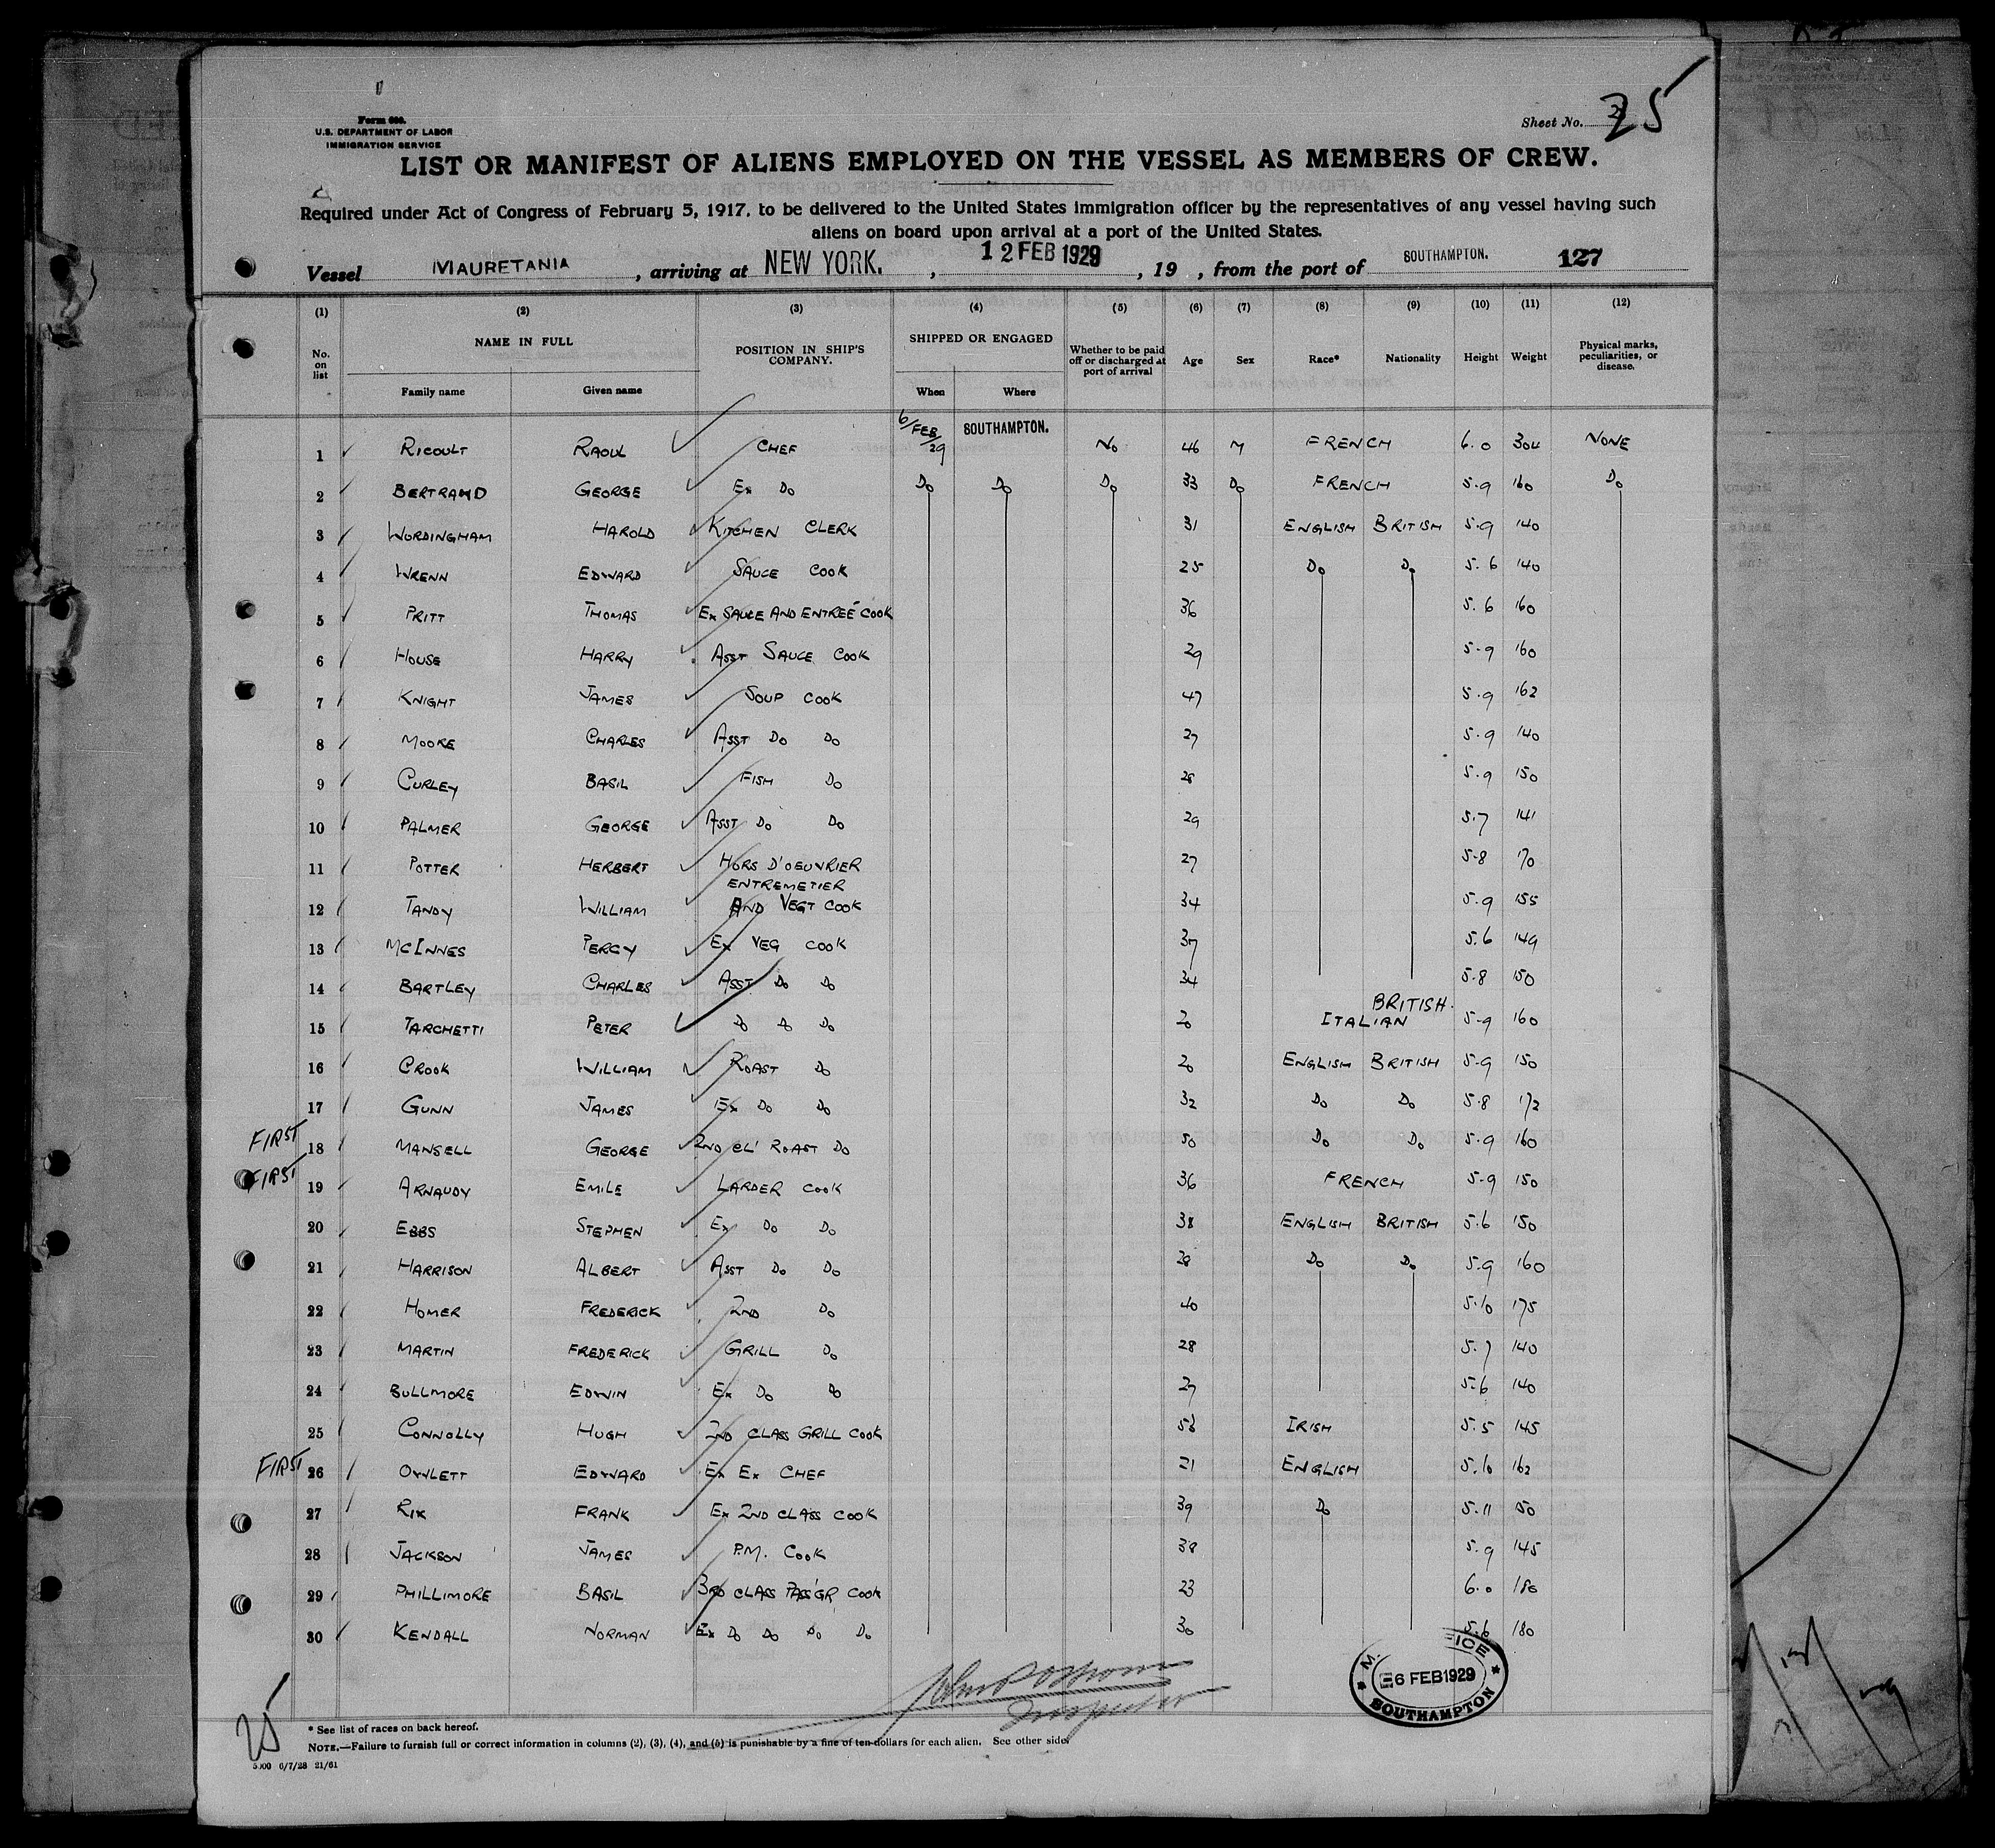 Form 680.
U.S. DEPARTMENT OF LABOR
IMMIGRATION SERVICE
Sheet No. 25
LIST OR MANIFEST OF ALIENS EMPLOYED ON THE VESSEL AS MEMBERS OF CREW.
Required under Act of Congress of February 5, 1917, to be delivered to the United States immigration officer by the representatives of any vessel having such
aliens on board upon arrival at a port of the United States.
Vessel MAURETANIA, arriving at NEW YORK., 12 FEB 1929, 19 , from the port of SOUTHAMPTON. 127
(1) (2) (3) (4) (5) (6) (7) (8) (9) (10) (11) (12)
No. on list NAME IN FULL POSITION IN SHIP'S COMPANY. SHIPPED OR ENGAGED Whether to be paid off or discharged at port of arrival Age Sex Race* Nationality Height Weight Physical marks, peculiarities, or disease.
Family name Given name When Where
1 RICOULT RAOUL CHEF 6/FEB/29 SOUTHAMPTON. NO 46 M FRENCH 6.0 304 NONE
2 BERTRAND GEORGE EX DO DO DO DO 33 DO FRENCH 5.9 160 DO
3 WORDINGHAM HAROLD KITCHEN CLERK 31 ENGLISH BRITISH 5.9 140
4 WRENN EDWARD SAUCE COOK 25 DO DO 5.6 140
5 PRITT THOMAS EX SAUCE AND ENTREÉ COOK 36 5.6 160
6 HOUSE HARRY ASST SAUCE COOK 29 5.9 160
7 KNIGHT JAMES SOUP COOK 47 5.9 162
8 MOORE CHARLES ASST DO DO 27 5.9 140
9 CURLEY BASIL FISH DO 28 5.9 150
10 PALMER GEORGE ASST DO DO 29 5.7 141
11 POTTER HERBERT HORS D'OEUVRIER 27 5.8 170
ENTREMETIER
12 TANDY WILLIAM AND VEGT COOK 34 5.9 155
13 MCINNES PERCY EX VEG COOK 37 5.6 149
14 BARTLEY CHARLES ASST DO DO 34 5.8 150
BRITISH.
15 TARCHETTI PETER DO DO DO 20 ITALIAN 5.9 160
16 CROOK WILLIAM ROAST DO 20 ENGLISH BRITISH 5.9 150
17 GUNN JAMES EX DO DO 32 DO DO 5.8 172
FIRST 18 MANSELL GEORGE 2ND CL' ROAST DO 50 DO DO 5.9 160
FIRST 19 ARNAUDY EMILE LARDER COOK 36 FRENCH 5.9 150
20 EBBS STEPHEN EX DO DO 38 ENGLISH BRITISH 5.6 150
21 HARRISON ALBERT ASST DO DO 28 DO DO 5.9 160
22 HOMER FREDERICK 2ND DO 40 5.10 175
23 MARTIN FREDERICK GRILL DO 28 5.7 140
24 BULLMORE EDWIN EX DO DO 27 5.6 140
25 CONNOLLY HUGH 2ND CLASS GRILL COOK IRISH 5.5 145
FIRST 26 OWLETT EDWARD EX EX CHEF 21 ENGLISH 5.10 162
27 RIX FRANK EX 2ND CLASS COOK 39 DO 5.11 150
28 JACKSON JAMES P.M. COOK 38 5.9 145
29 PHILLIMORE BASIL 3RD CLASS PASS'GR COOK 23 6.0 180
30 KENDALL NORMAN EX DO DO DO DO 30 5.6 180
Inspector
6 FEB 1929
SOUTHAMPTON
25
* See list of races on back hereof.
NOTE.—Failure to furnish full or correct information in columns (2), (3), (4), and (5) is punishable by a fine of ten dollars for each alien. See other side.
5000 6/7/28 21/61